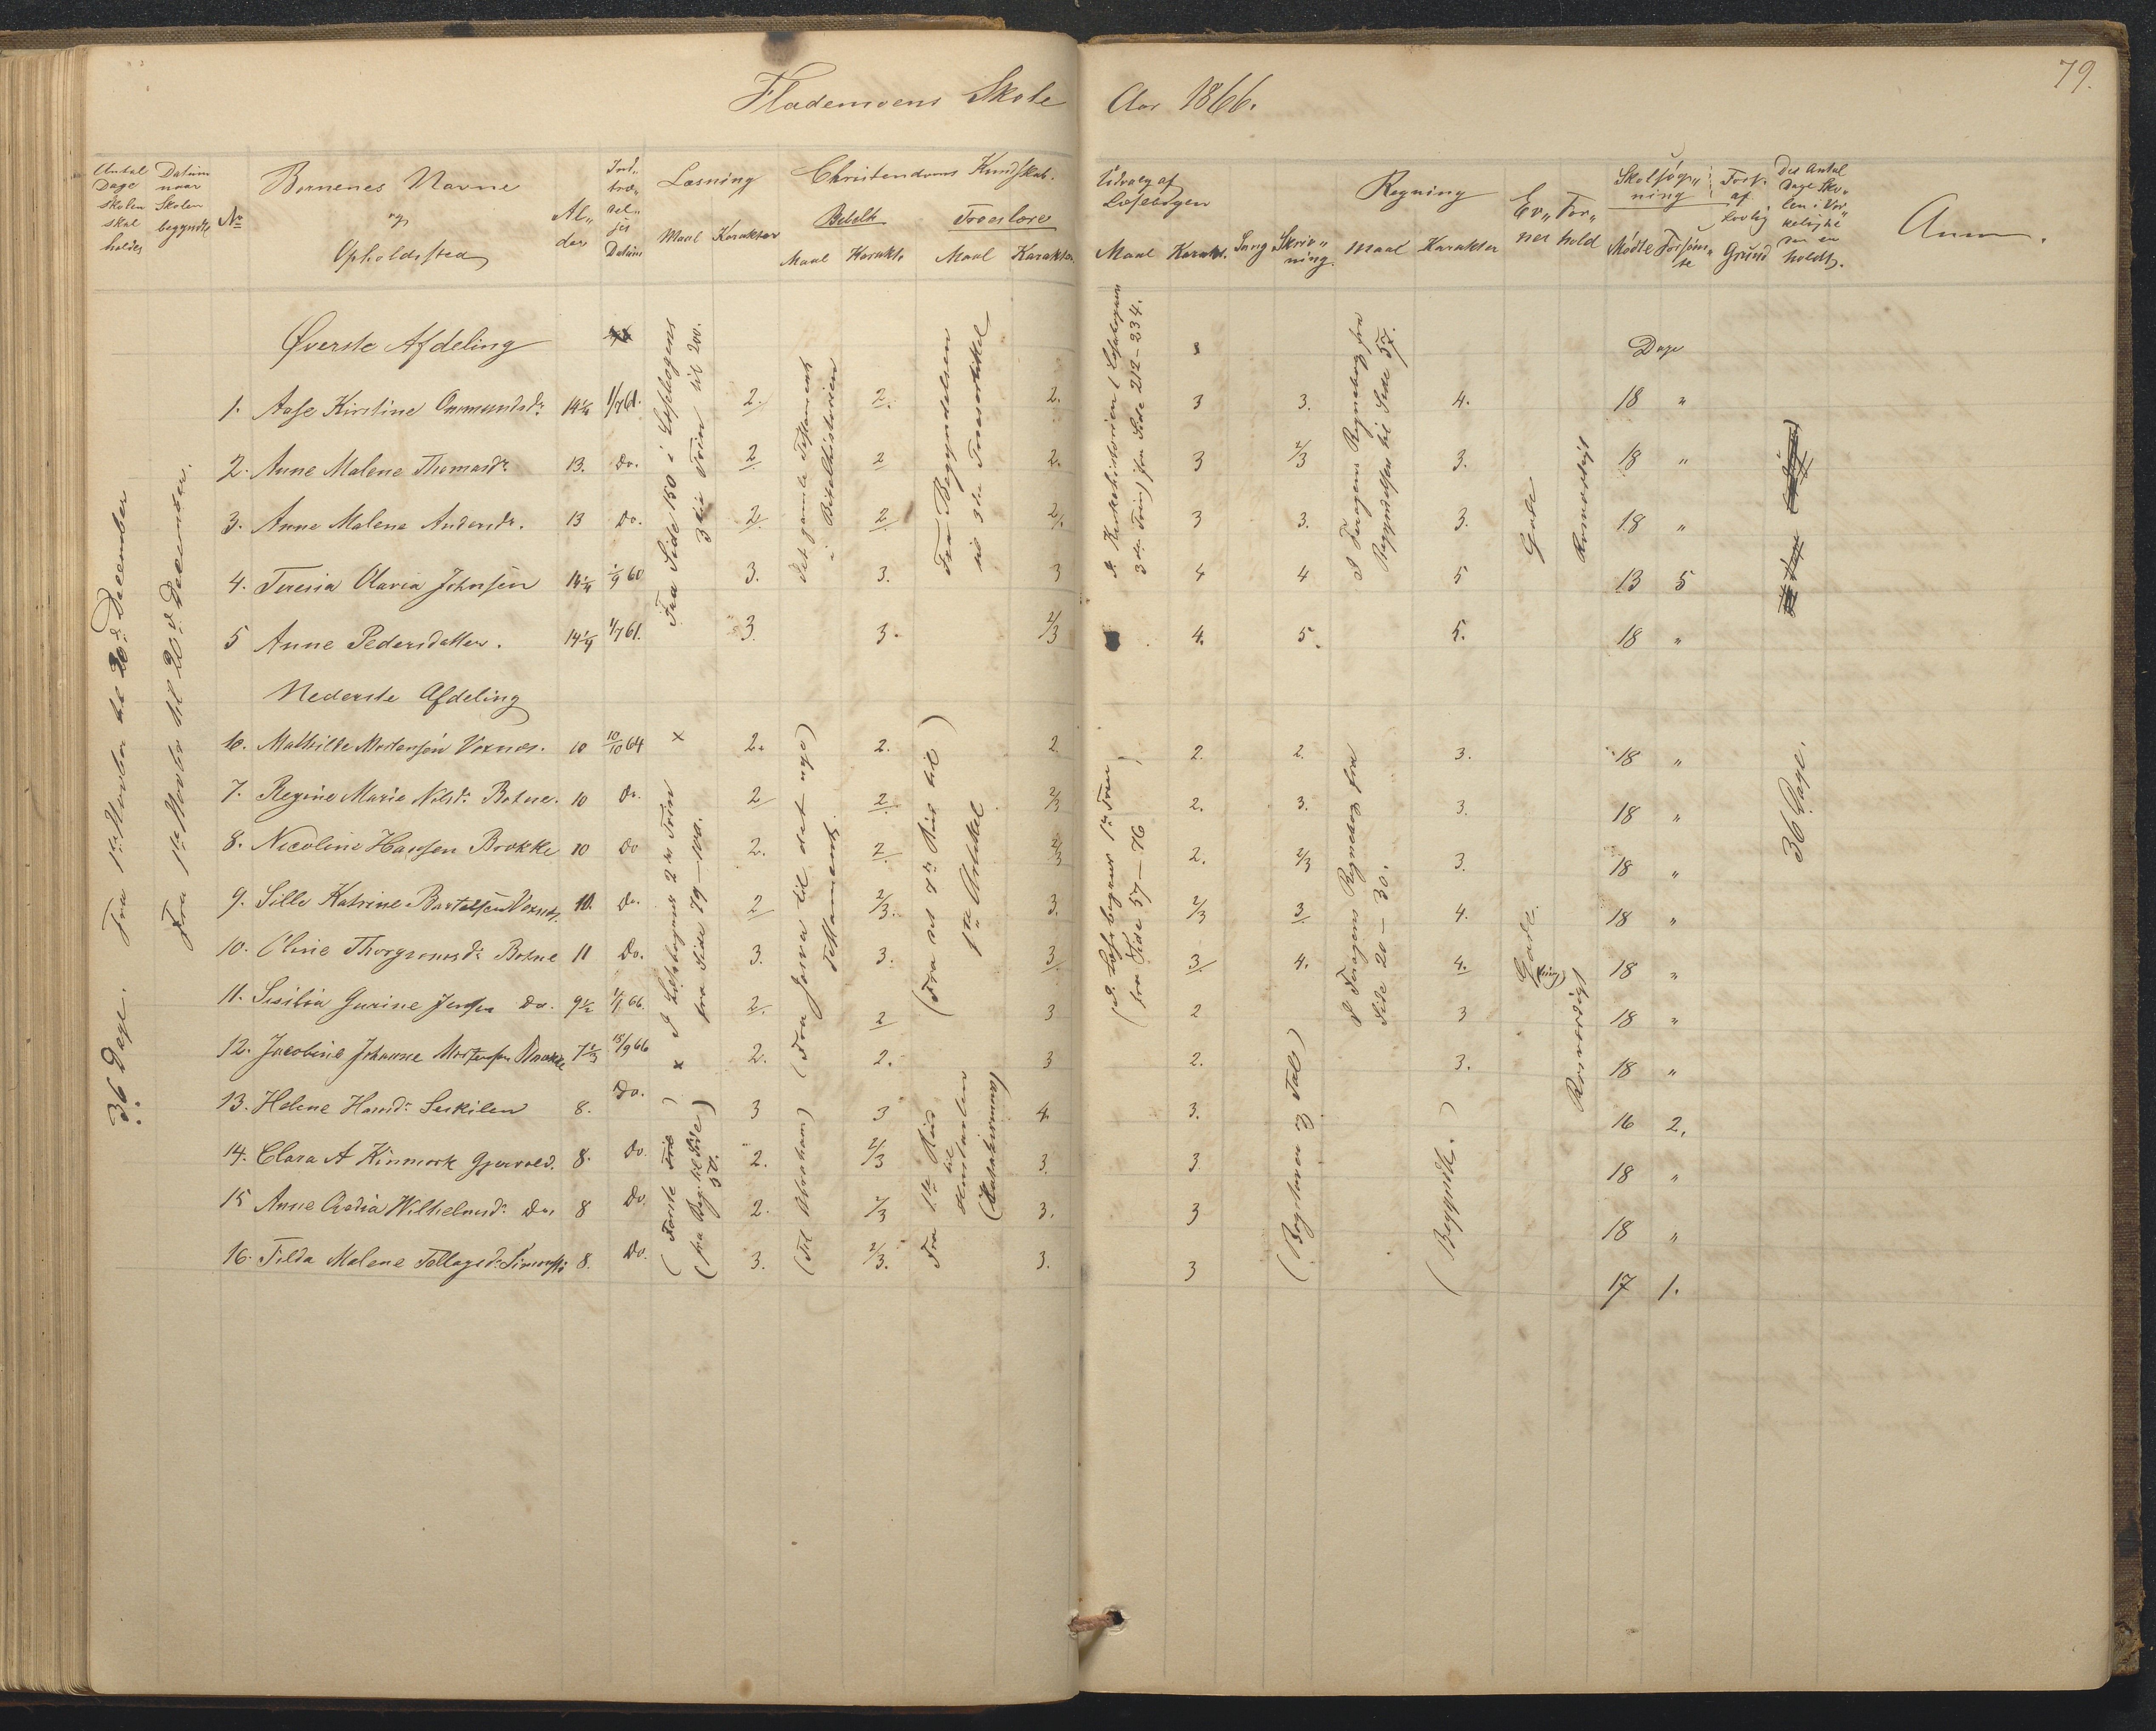 79.
Flademoens Skole Aar 1866.
Antal Dage skolen skal holdes
Datum naar Skolen begyndte
No
Børnenes Navne og Opholdssted
Al„ der
Ind„ træ„ del„ ses Datum
Læsning
Maal Karakter
Christendoms Kundskab.
Bibelh Troeslære
Maal Karakt. Maal Karakter
Udvalg af Læsebogen
Maal Karakt.
Sang Skriv„ ning
Regning
Maal Karakter
Ev„ ner
For„ hold
Skolsøgn„ ning
Mødte Forsøm„ se
Fors. af Lovlig Grund
Det Antal Dage Sko„ len i Vir„ kelighe den er holdt.
Anm.
Øverste Afdeling Dage
1. Aase Kirstine Ommundsdr. 14¼ 1/7 61. 2. 2. 2. 3 3. 4. 18 „
2. Anne Malene Thomasdr. 13. Do. 2 2 2. 3 2/3 3. 18 „
3. Anne Malene Andersdr. 13 Do. 2. 2 2. 3 3. 3. 18 „
4. Teresia Olavia Johnsen 14¼ 1/9 60 3. 3. 3 4 4 5 13 5
5 Anne Pedersdatter. 14¼ 1/7 61. 3. 3. 2/3 4. 5. 5. 18 „
Nederste Afdeling
6. Mathilde Mortensen Voxnes. 10 10/10 64 2. 2. 2 2. 2. 3. 18 „
7. Regine Marie Nilsdr. Botne. 10 Do. 2 2. 2/3 2. 3. 3. 18 „
8. Nicoline Hansen Brokke 10 Do 2. 2. 2/3 2. 2/3 3. 18 „
9. Sille Katrine Bartelsen Voxnes. 10. Do. 2 2/3. 3. 2/3 3 4. 18 „
10. Oline Thorgrimsdr. Botne 11 Do. 3. 3. 3. 3. 4. 4. 18 „
11. Sisilia Gurine Jensen Do. 9½ 1/1 66. 2. 2 3 2 3 18 „
12. Jacobine Johanne Mortensen Brokke 7⅓ 15/9 66 2. 2. 3 2. 3. 18 „
13. Helene Hansdr. Seskilen 8. Do. 3 3 4. 3. 16 2.
14. Clara A Kinmork Gjervold. 8. Do. 2. 2/3 3. 3. 18 „
15 Anne Wilhelmsdr. Do. 8 Do. 2. 2/3 3. 3 18 „
16. Tilda Malene Tellagsdr. 8. Do. 3. 2/3. 3. 3 17 1.
36 Dage. Fra 1ste Novbr til 20de December
Fra 1ste Novbr til 20de December.
Fra Side 150 i Læsebogens
3die Trin til 200.
Det gamle Testament
i Bibelhistorien
Fra Begyndelsen
til 3die Troesartikel
Kirkehistorien i Læsebogens
3die Trin fra Side 212–234.
I Foragens Regnebog fra
Begyndelsen til Side 57.
Gode
Roesværdigt
x I Læsebogens 2det Trin x
fra Side 79–100.
(Fra Josva til det nye)
Testament.
(Fra det 4de Bud til)
1ste Artikel
(Læsebogens 1ste Trin)
fra Side 57–76
I Foragens Regnebog fra
Side 20–30.
Gode.
Roesværdigt
36 Dage.
(Første Trin)
(fra Beg. til Side)
50.
(Til Abraham)
Fra 1ste Bud
til
(Katekismus)
(Bogstaver og Tal)
(Begyndt.)